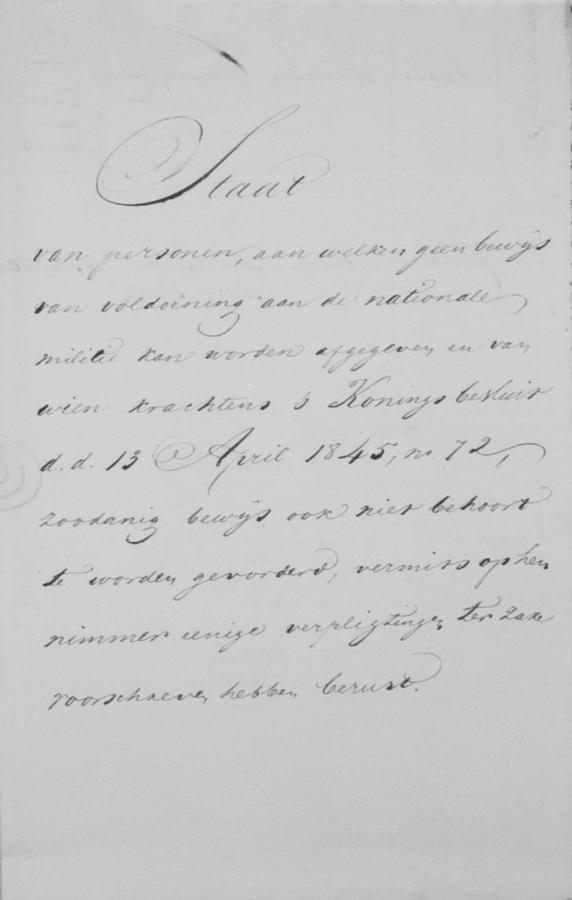 Staat
van personen, aan welken geen bewijs
van voldoening aan de nationale
militie kan worden afgegeven en van
wien krachtens 's Konings besluit
d.d. 13 April 1845, no. 72,
zoodanig bewijs ook niet behoort
te worden gevorderd, vermits op hen
nimmer eenige verpligtingen ter zake
voorschreven hebben berust.